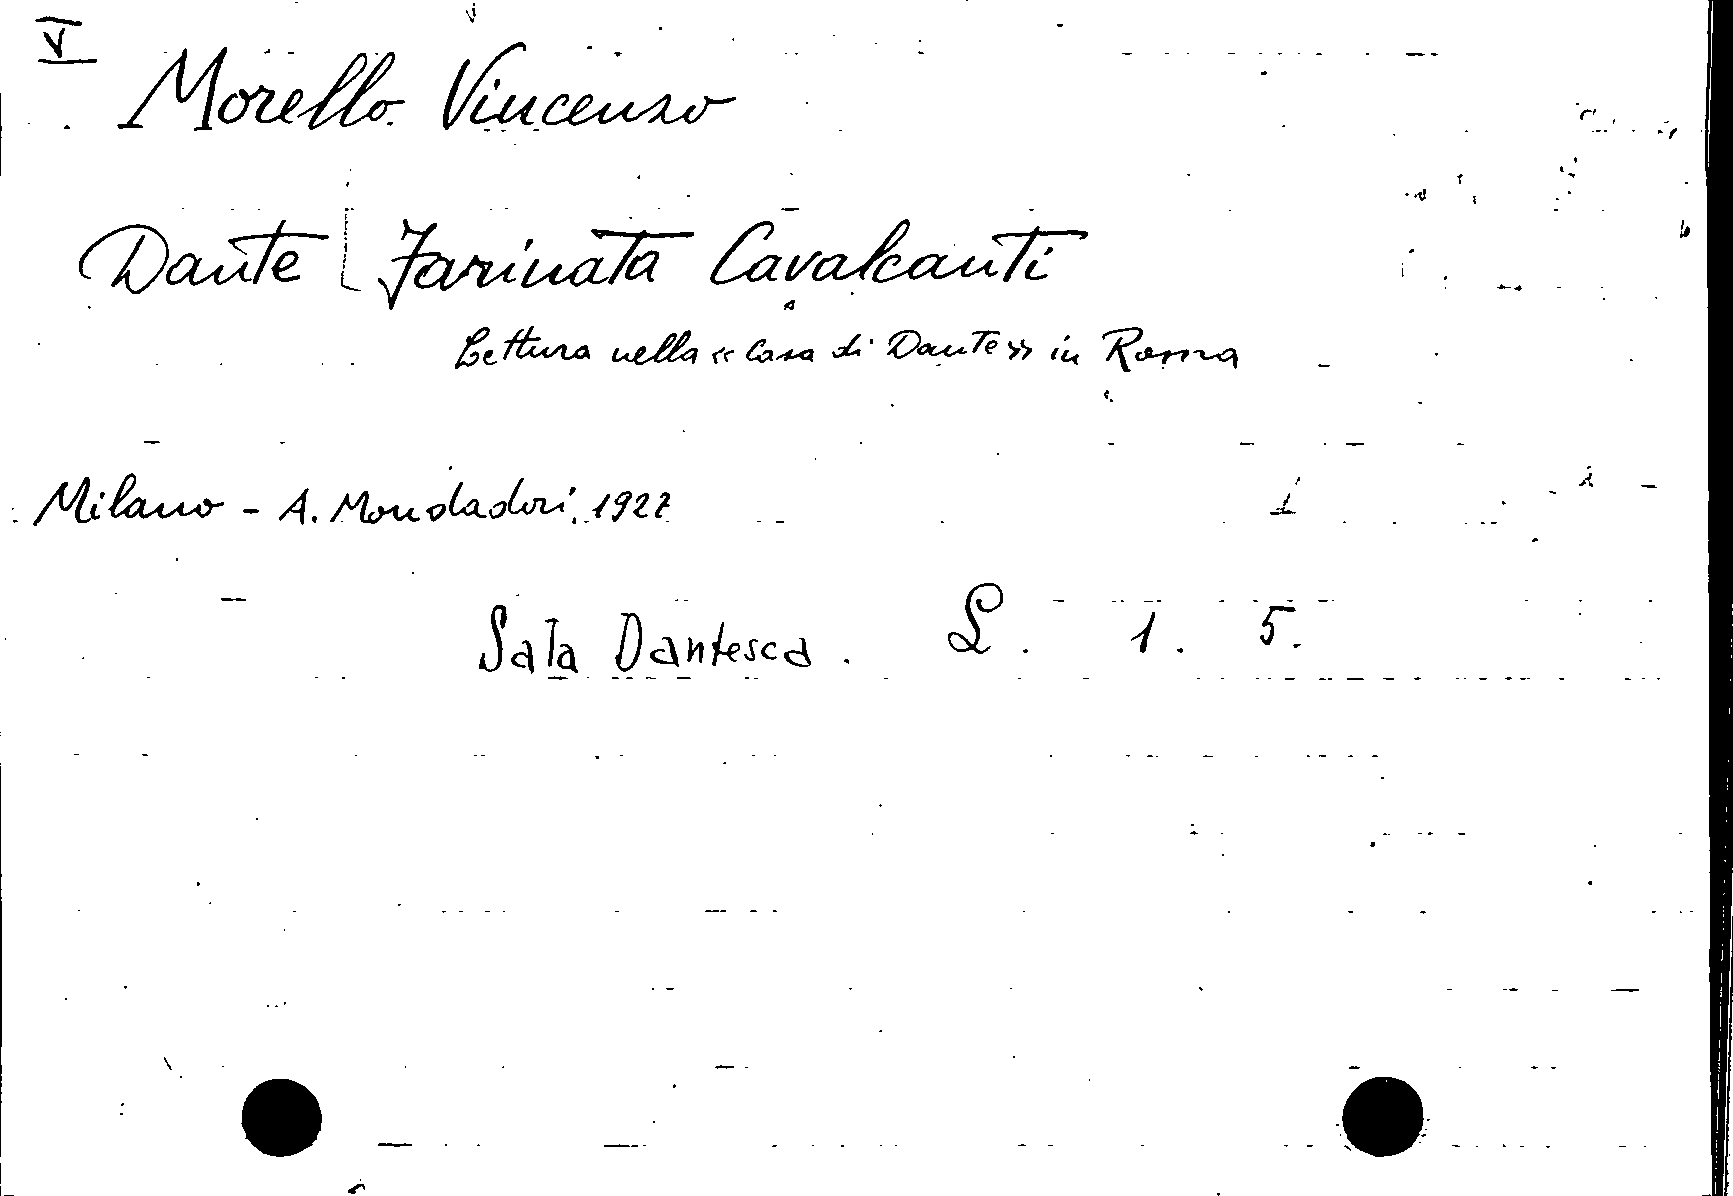 V
Morello Vincenzo
Dante [ Farinata Cavalcanti
Lettura nella «Casa di Dante» in Roma
Milano - A. Mondadori, 1927
Sala Dantesca. L. 1. 5.